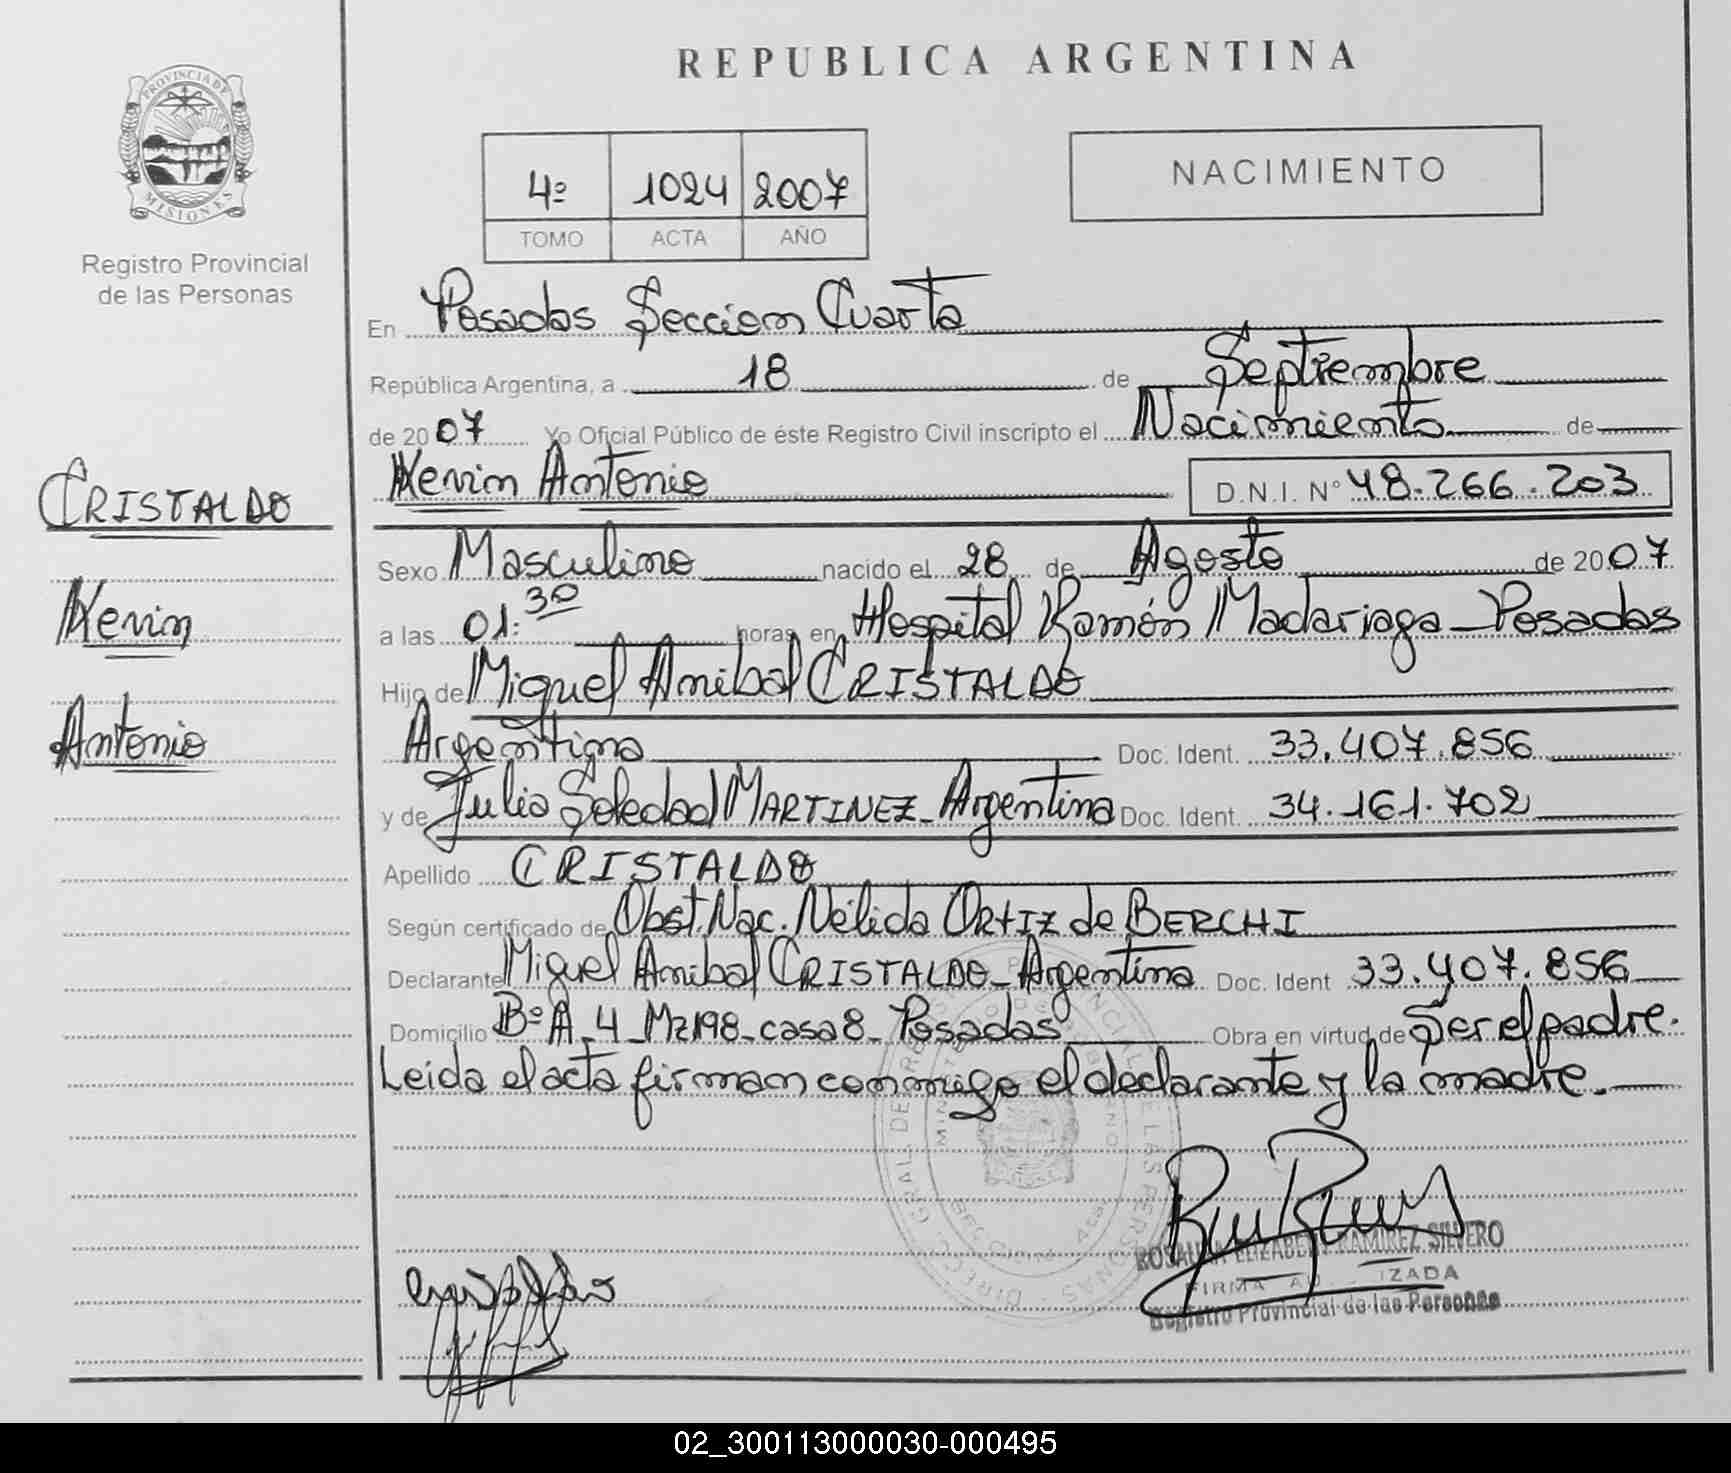 REPUBLICA ARGENTINA
PROVINCIA DE
MISIONES
Registro Provincial
de las Personas
4º 1024 2007
TOMO ACTA AÑO
NACIMIENTO
En Posadas Seccion Cuarta
República Argentina, a 18 de Septiembre
de 2007 Yo Oficial Público de éste Registro Civil inscripto el Nacimiento de
Kevin Antonio D.N.I. Nº 48.266.203
CRISTALDO
Kevin
Antonio
Sexo Masculino nacido el 28 de Agosto de 2007
a las 01:30 horas en Hospital Ramón Madariaga - Posadas
Hijo de Miguel Anibal CRISTALDO
Argentina Doc. Ident. 33.407.856
y de Julia Soledad MARTINEZ - Argentina Doc. Ident. 34.161.702
Apellido CRISTALDO
Según certificado de Obst. Nac. Nélida ORTIZ de BERCHI
Declarante Miguel Anibal CRISTALDO - Argentina Doc. Ident 33.407.856
Domicilio Bº A-4-Mz198-casa8- Posadas Obra en virtud de Ser el padre.
Leida el acta firman conmigo el declarante y la madre.
ELIZABETH RAMIREZ SILVERO
FIRMA
Registro Provincial de las Personas
02_300113000030-000495